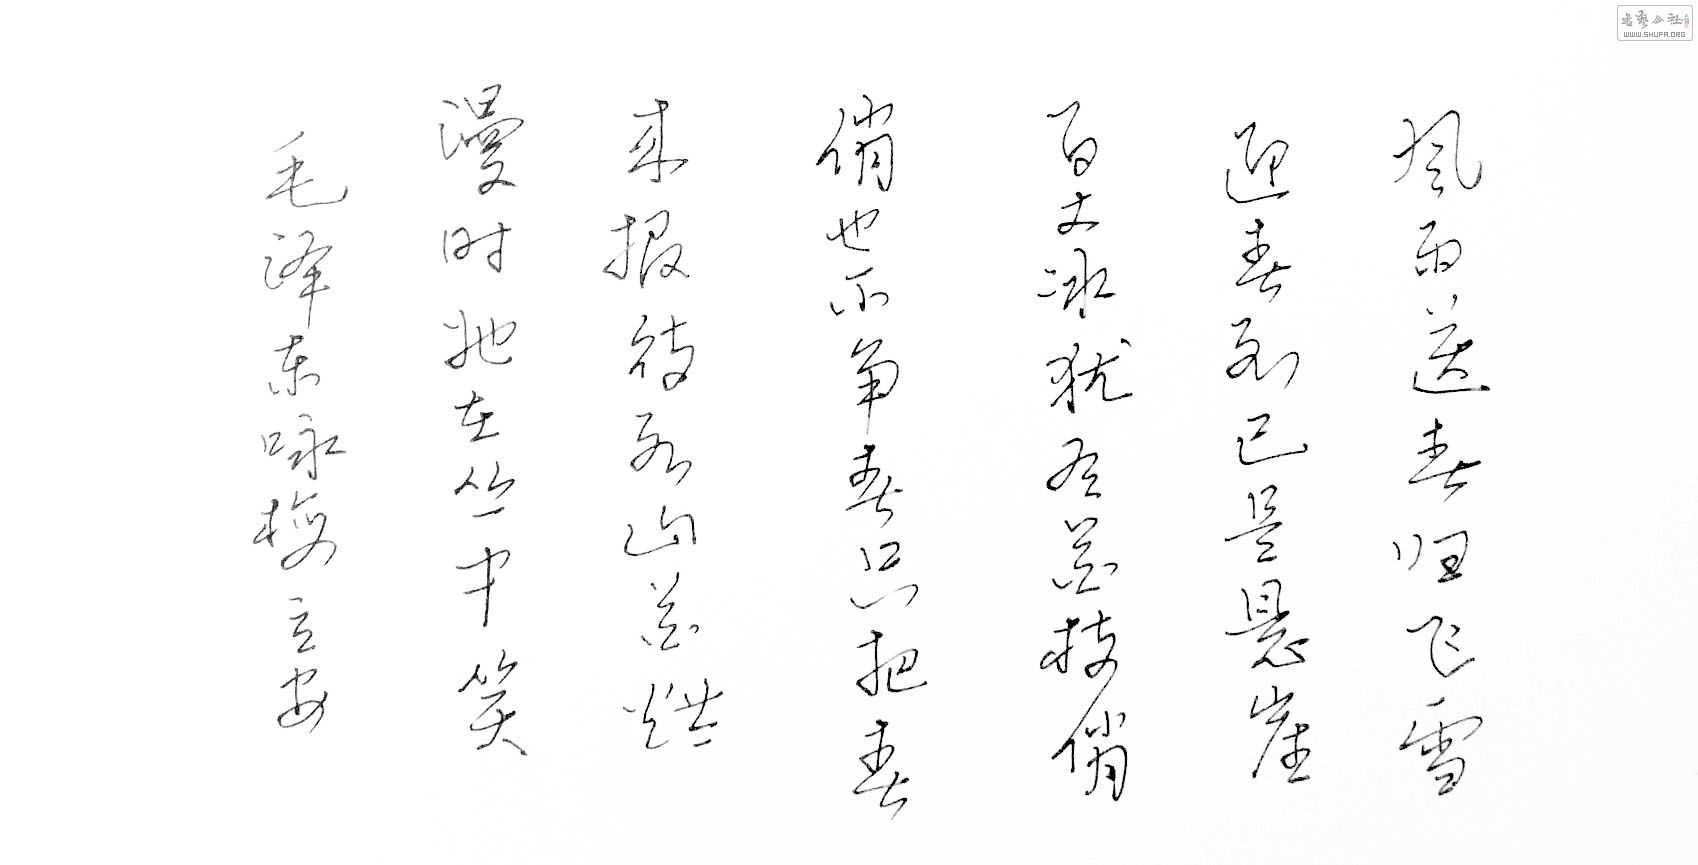 风雨送春归飞雪
迎春到已是悬崖
百丈冰犹有花枝俏
俏也不争春只把春
来报待到山花烂
漫时她在丛中笑
毛泽东咏梅
书艺公社
WWW.SHUFA.ORG